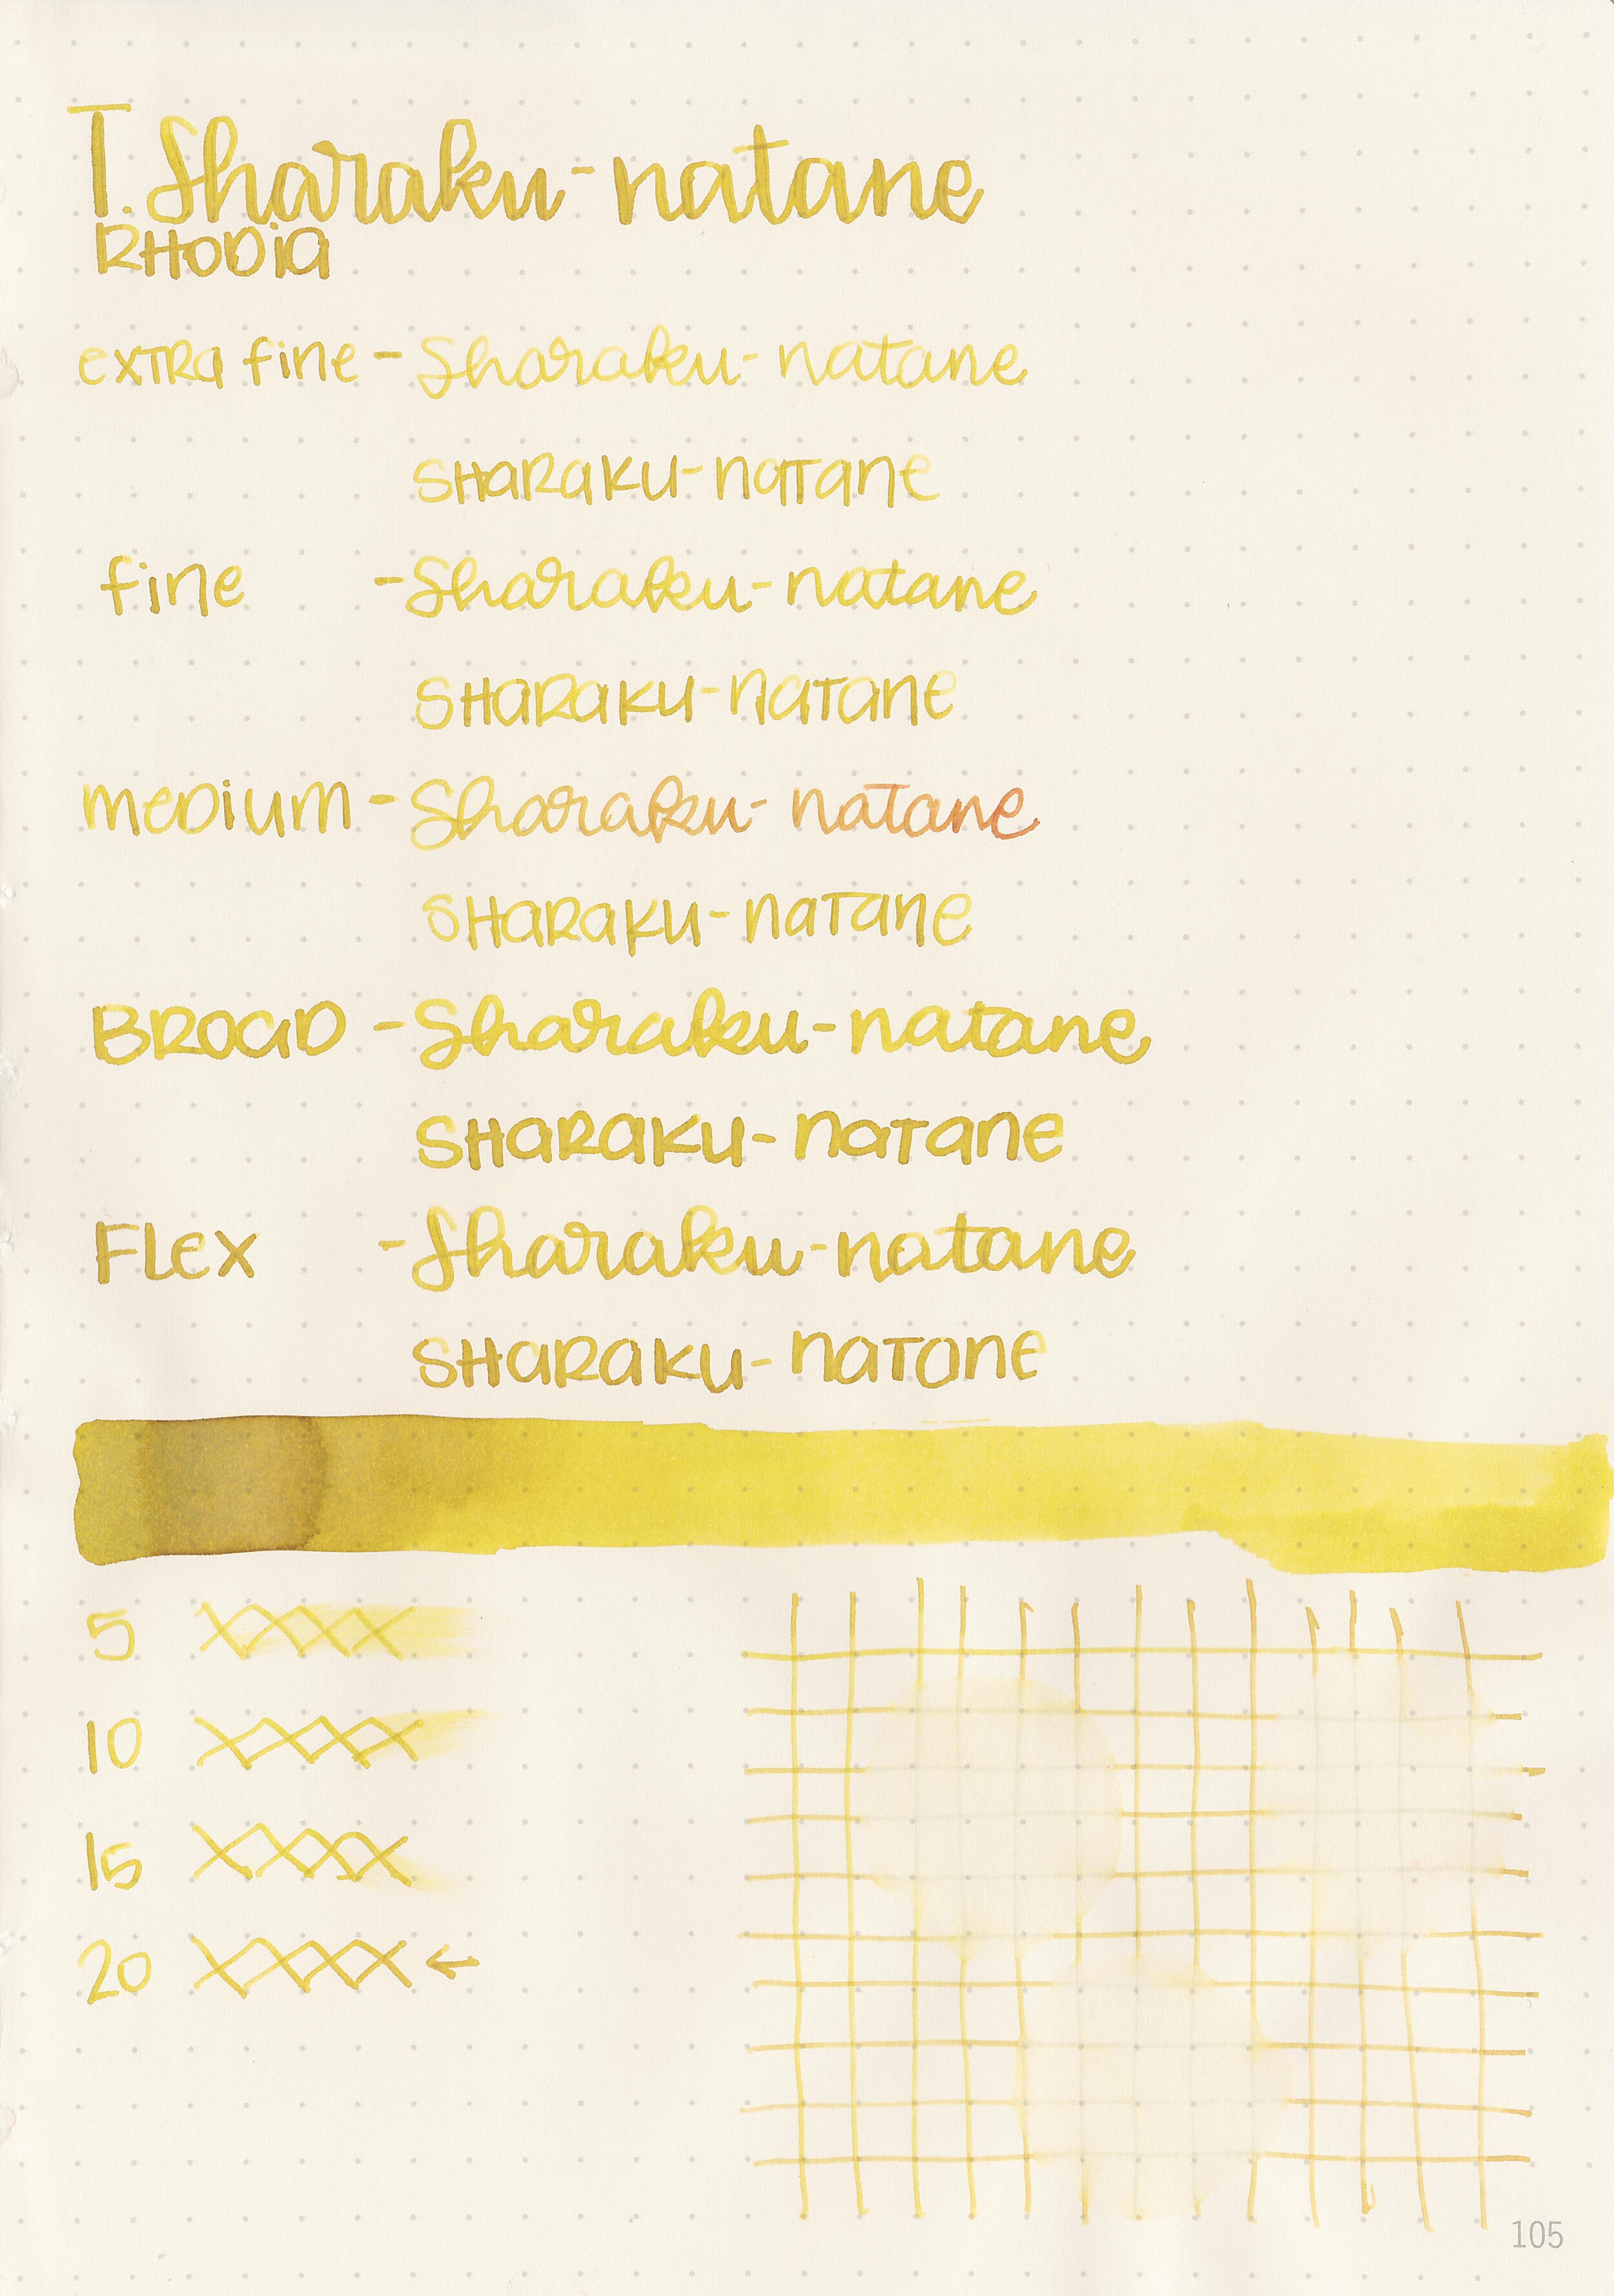 T. Sharaku-natane
RHODIA
extra fine - Sharaku-natane
SHARAKU-NATANE
fine - Sharaku-natane
SHARAKU-NATANE
MEDIUM - Sharaku-natane
SHARAKU-NATANE
BROAD - Sharaku-natane
SHARAKU-NATANE
FLEX - Sharaku-natane
SHARAKU-NATANE
5 XXXX
10 XXXX
15 XXXX
20 XXXX ←
105